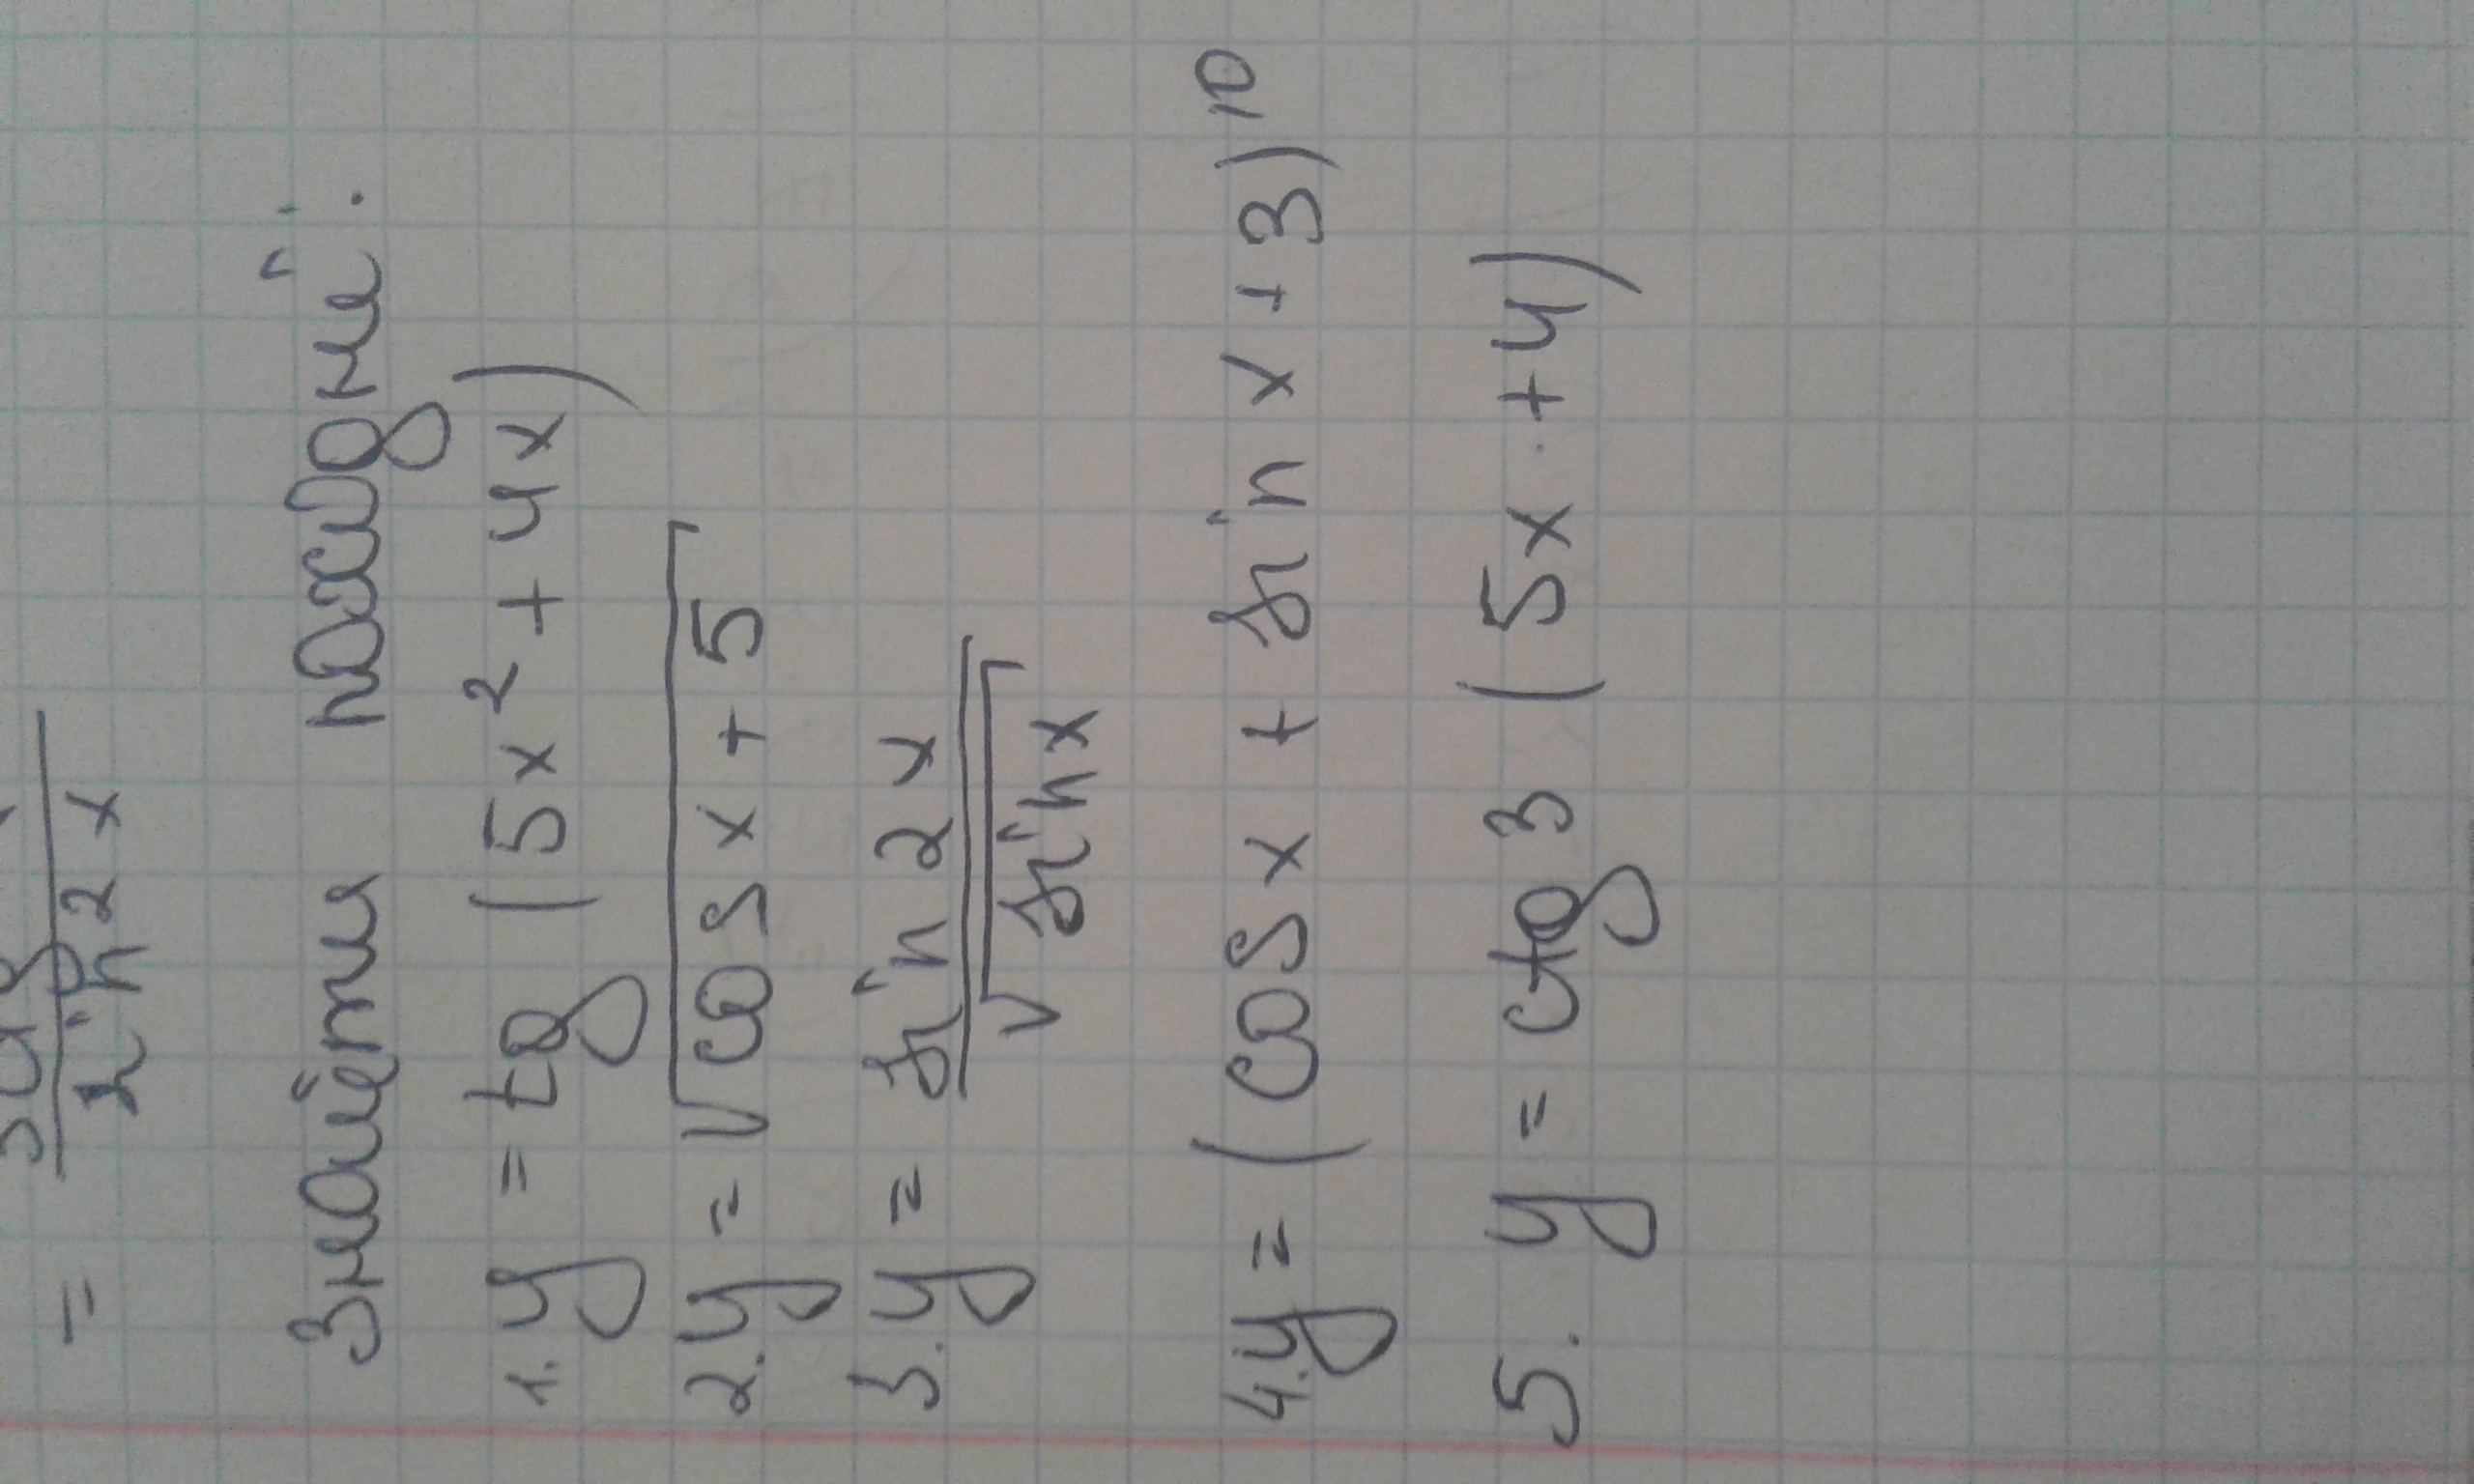 =
sin²x
Знайти похідні:
1. y = tg (5x² + 4x)
2. y = √cos x + 5
3. y = sin 2x / √sin x
4. y = (cos x + sin x + 3)¹⁰
5. y = ctg 3 (5x + 4)